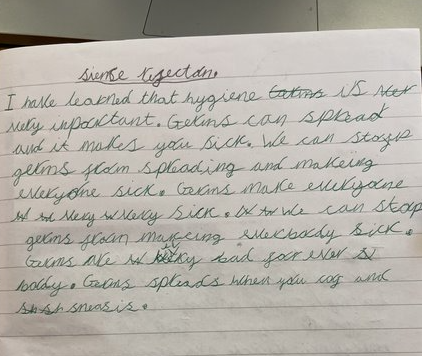 sience rejectan.
I have learned that hygiene is
very inportant. Germs can spread
and it makes you sick. We can stop
germs from spreading and makeing
everyone sick. Germs make everyone
very very sick. We can stop
germs from makeing everbody sick.
Germs are bad for ever
body. Germs spreads when you cog and
sneasis.